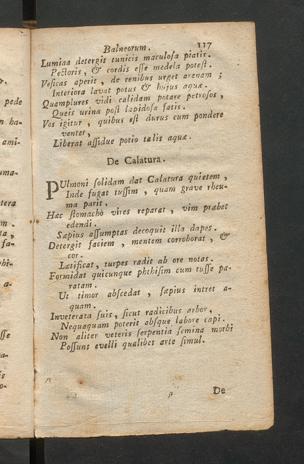 Balneorum. 117
Lumina detergit tunicis maculosa piatis.
Pectoris, & cordis esse medela potest.
Vesicas aperit, de renibus urget arenam;
Interiora lavat potus & hujus aquæ.
Quamplures vidi calidam potare petrosos,
Queis urina post lapidosa satis.
Vos igitur, quibus est durus cum pondere
venter,
Liberat assidue potio talis aquæ.
De Calatura.
PUlmoni solidam dat Calatura quietem,
Inde fugat tussim, quam grave rheu-
ma parit.
Hæc stomacho vires reparat, vim præbet
edendi.
Sæpius assumptas decoquit illa dapes.
Detergit faciem, mentem corroborat, &
cor.
Lætificat, turpes radit ab ore notas.
Formidat quicunque phthisim cum tusse pa-
ratam.
Ut timor abscedat, sæpius intret a-
quam.
Inveterata suis, sicut radicibus arbor,
Nequaquam poterit absque labore capi.
Non aliter veteris serpentia semina morbi
Possunt evelli qualibet arte simul.
De
pede
ami-